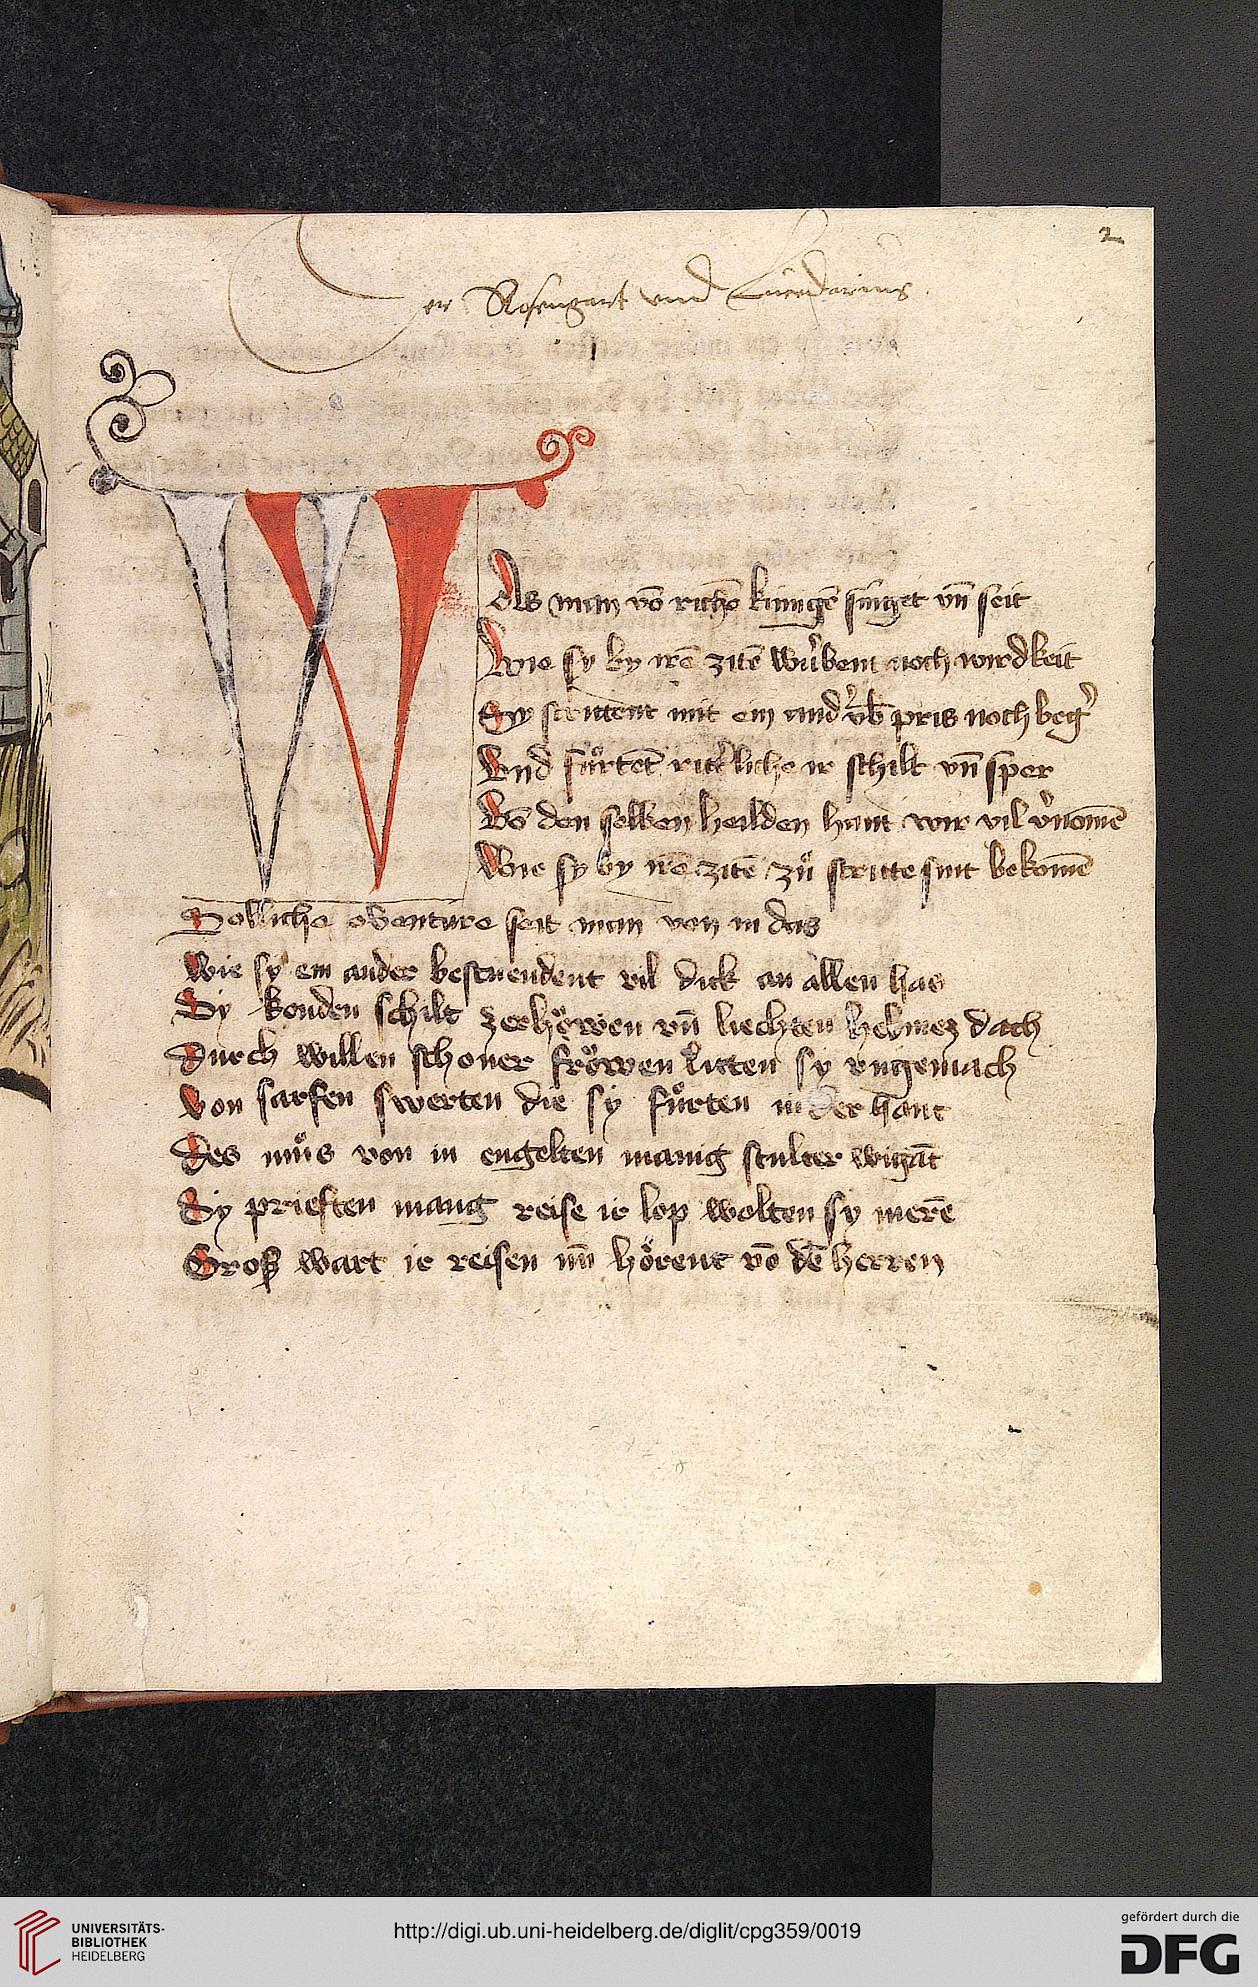 2
Der Rosengart und Lucidarius
Was man vō richē kunigē singet vn̄ seit
Wie sy by irē zitē wurbent noch wirdkeit
Sy strittent mit ein and' vb pris noch beg'
Vnd fůrtēt rit'liche ir schilt vn̄ sper
Vō den selben heilden hant wir vil v'nomē
Wie sy by irē zitē zů stritte sint bekomē
Solliche obenture seit man von in das
Wie sy ein ander bestuendent vil dick an allen has
Sy konden schilt zerhŏwen vn̄ liechten helmez dach
Durch willen schoner frŏwen litten sy vngemach
Von sarfen swerten die sy fůrten in der hant
Des můs von in engelten manig stulter wigāt
Sy prieften mang reise ir lop wolten sy merē
Groß wart ir reisen nū hŏrent vō dē herren
UNIVERSITÄTS-
BIBLIOTHEK
HEIDELBERG
http://digi.ub.uni-heidelberg.de/diglit/cpg359/0019
gefördert durch die
DFG